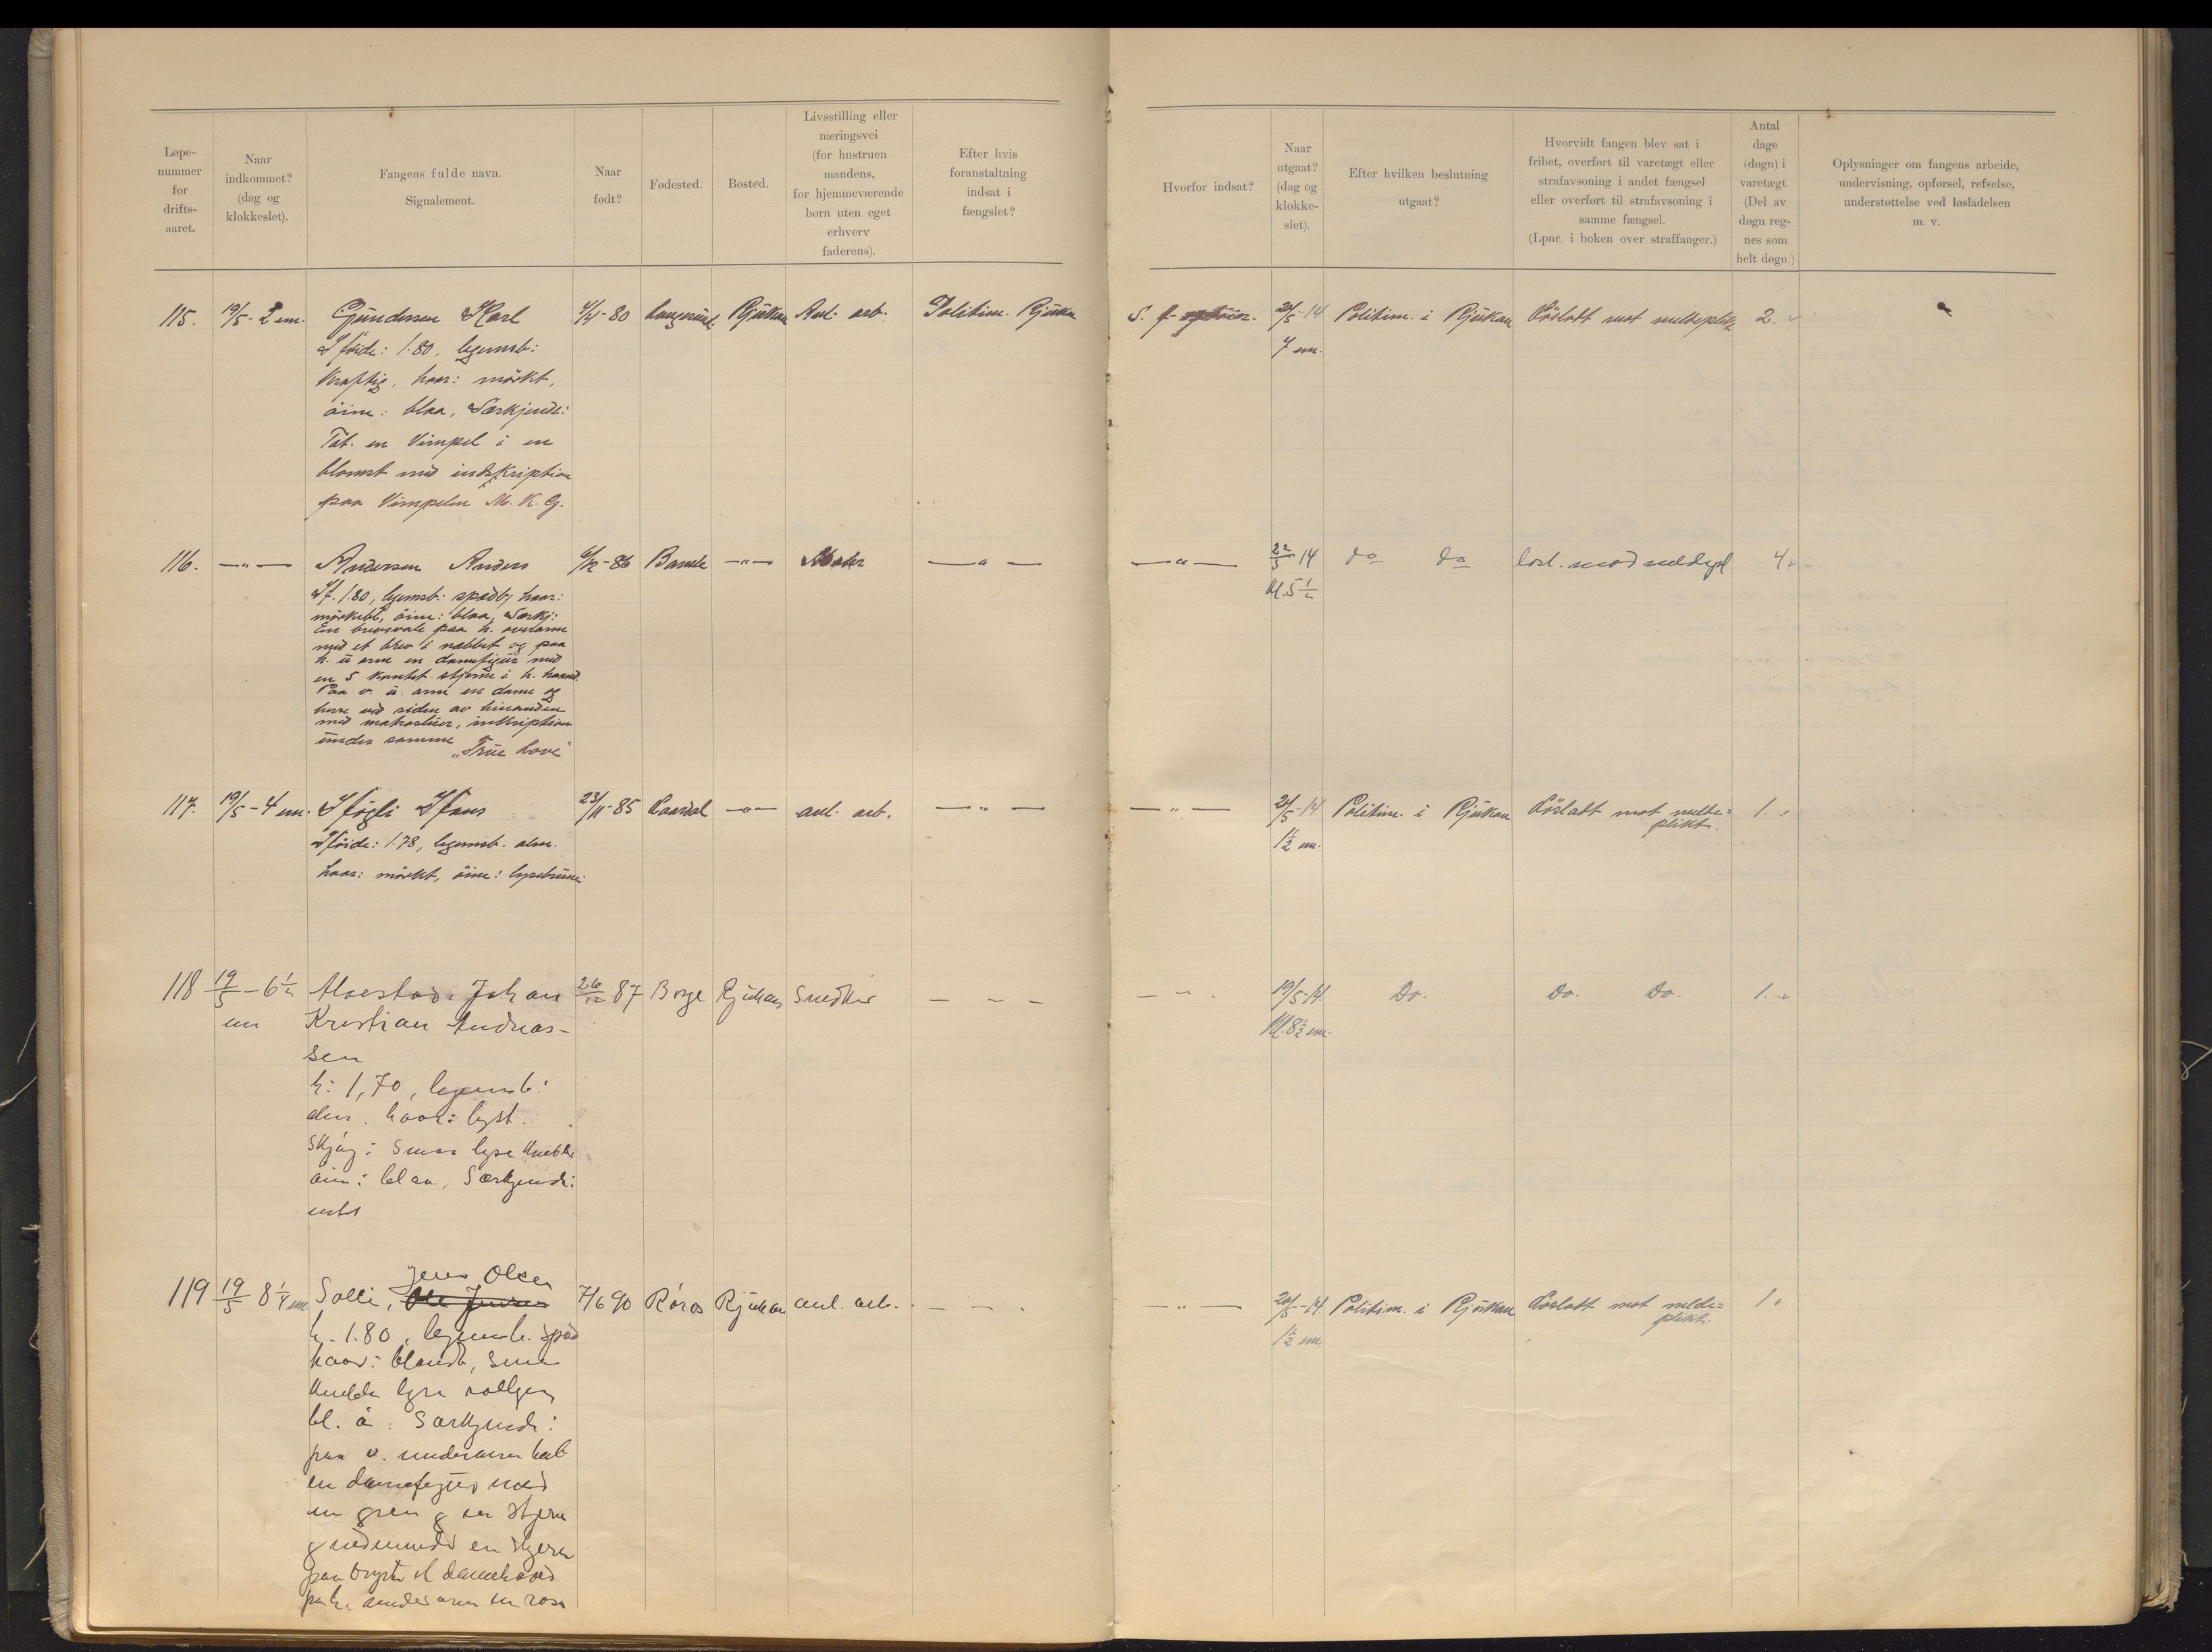 Løpe-
nummer
for
drifts-
aaret.
Naar
indkommet?
(dag og
klokkeslet).
Fangens fulde navn.
Signalement.
Naar
født?
Fødested.
Bosted.
Livsstilling eller
næringsvei
(for hustruen
mandens,
for hjemmeværende
børn uten eget
erhverv
faderens).
Efter hvis
foranstaltning
indsat i
fængslet?
Hvorfor indsat?
Naar
utgaat?
(dag og
klokke-
slet).
Efter hvilken beslutning
utgaat?
Hvorvidt fangen blev sat i
frihet, overført til varetægt eller
strafavsoning i andet fængsel
eller overført til strafavsoning i
samme fængsel.
(Lpnr. i boken over straffanger.)
Antal
dage
(døgn) i
varetægt
(Del av
døgn reg-
nes som
helt døgn.)
Oplysninger om fangens arbeide,
undervisning, opførsel, refselse,
understøttelse ved løsladelsen
m. v.
115. 19/5 - 2 em. Gundersen Karl 4/4-80 Langesund Rjukan Anl. arb. Politim. Rjukan S. f. 20/5-14 Politim. i Rjukan Løslatt mot meldeplikt 2.
7 em.
Høide: 1.80, legemsb:
Kraftig, haar: mørkt,
øine: blaa, Særkjende:
Tat. en Vimpel i en
blomst med indskription
paa Vimpelen M. K. G.
116. —„— Andersen Anders 6/12-86 Bamle —„— —„— —„— 22/5-14 do do losl. mod meldepl 4
Kl. 5 1/2
Hf. 1.80, legemsb: spædb, haar:
mørkebl, øine: blaa, Særkj:
En brevsvale paa h. overarm
med et brev i næbbet og paa
h. u arm en damefigur med
en 5 kantet stjerne i h. haand.
Paa v. u. arm en dame og
herre ved siden av hinanden
med matrosluer, inskription
under samme
„True Love"
117. 19/5 - 4 em. Høgli Hans 23/11-85 Laardal —„— anl. arb. —„— —„— 20/5-14 Politim. i Rjukan Løslatt mot melde=
plikt. 1.
1 1/2 em.
Høide: 1.78, legemsb. alm.
haar: mørkt, øine: lysebrune
118 19/5 - 6 1/2 Johan 26/12 87 Borge Rjukan Snedker — „ — — „ — 19/5-14. Do. Do. Do. 1.
em Kl. 8 1/2 em.
Kristian Andreas-
sen
h: 1,70, legemsb:
alm. haar: lyst.
Skjæg: Smaa lyse
øine: blaa, Særkjende:
intet
Jens Olsen
119 19/5 8 1/4 em Solli, 7/6 90 Røros Rjukan anl. arb. — — — „ — 20/5-14. Politim. i Rjukan Løslatt mot melde=
plikt. 1
1 1/2 em.
h. 1.80, legemsb. spæd
haar: blondt, smaa
lyse
bl. ø. Særkjende:
paa v. underarm tat
en damefigur med
en gren og en stjerne
og nedenunder en stjerne
paa bryst et damehoved
paa h. underarm en rose